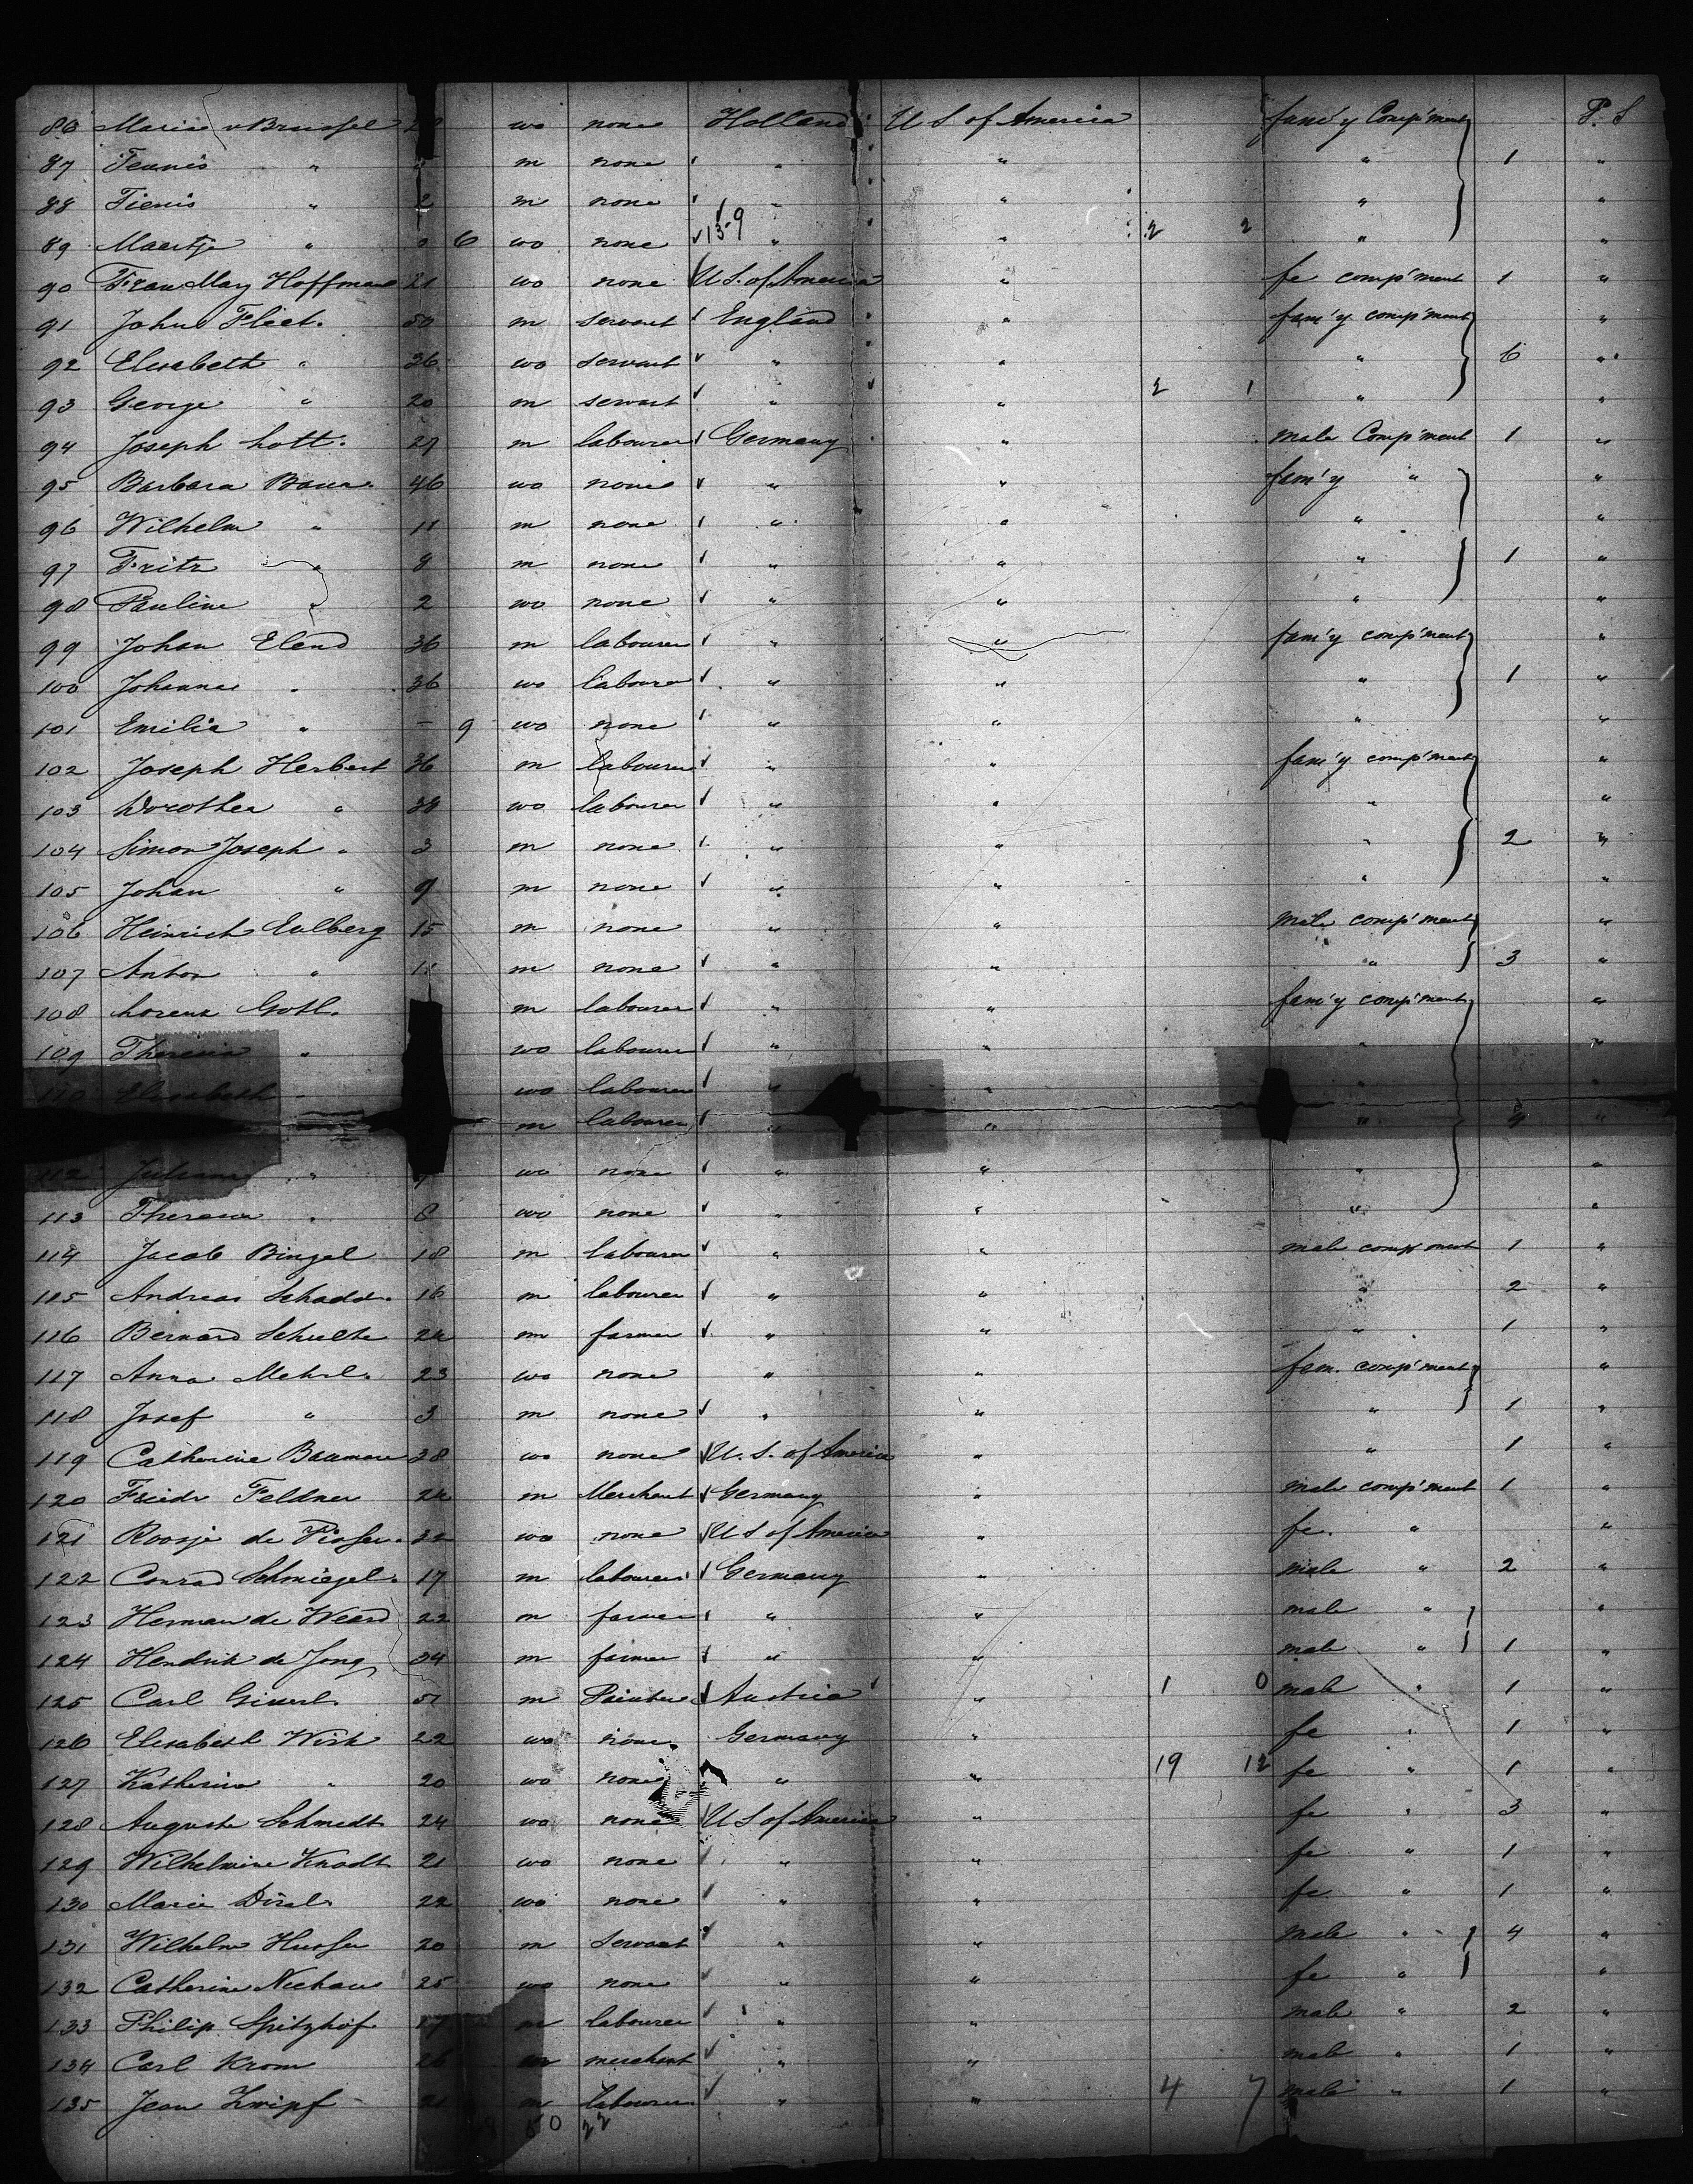 86 Maria v Brussel 28 wo none Holland U S of America fam'y Comp'ment P. S
87 Teunis " m none " " " 1 "
88 Tienis " 2 m none " " " "
89 Maartje " 0 6 wo none 13-9 " " 2 2 " "
90 Frau May Hoffman 21 wo none U S. of America " fe comp'ment 1 "
91 John Fleet. 50 m servant England " fam'y comp'ment "
92 Elisabeth " 36 wo servant " " " 6 "
93 George " 20 m servant " " 2 1 " "
94 Joseph Lott. 27 m labourer Germany " male Comp'ment 1 "
95 Barbara Bauer 46 wo none " " fam'y " "
96 Wilhelm " 11 m none " " " "
97 Fritz " 8 m none " " " 1 "
98 Pauline " 2 wo none " " " "
99 Johan Elend 36 m labourer " " fam'y comp'ment "
100 Johanna " 36 wo labourer " " " 1 "
101 Emilia " - 9 wo none " " " "
102 Joseph Herbert 36 m labourer " " fam'y comp'ment "
103 Dorothea " 38 wo labourer " " " "
104 Simon Joseph " 3 m none " " " 2 "
105 Johan " 9 m none " " " "
106 Heinrich Eulberg 15 m none " " male comp'ment "
107 Anton " m none " " " 3 "
108 Lorenz Gotl. m labourer " " fam'y comp'ment "
109 Theresia " wo labourer " " " "
110 Elisabeth " wo labourer " " " "
m labourer " " " "
112 Juliana " wo none " " " "
113 Theresia " 8 wo none " " " "
114 Jacob Bingel 18 m labourer " " male comp'ment 1 "
115 Andreas Schadd. 16 m labourer " " " 2 "
116 Bernard Schulte 24 m farmer " " " 1 "
117 Anna Mehrl. 23 wo none " " fam. comp'ment "
118 Josef " 3 m none " " " 1 "
119 Catherine Baumann 28 wo none U. S. of America " " 1 "
120 Friedr Feldner 24 m Merchant Germany " male comp'ment 1 "
121 Roosje de Visser. 32 wo none U S of America " fe. " "
122 Conrad Schmiegel. 17 m labourer Germany " male " 2 "
123 Herman de Weerd 22 m farmer " " male " "
124 Hendrik de Jong 34 m farmer " " male " 1 "
125 Carl Gikerl. 51 m Painter Austria " 1 0 male " 1 "
126 Elisabeth Wirk 22 wo none Germany " fe " 1 "
127 Katherina " 20 wo none " " 19 12 fe " 1 "
128 Auguste Schmedt 24 wo none U S of America " fe " 3 "
129 Wilhelmine Knodt 21 wo none " " fe " 1 "
130 Marie 22 wo none " " fe " 1 "
131 Wilhelm Husser 20 m Servant " " male " 4 "
132 Catherine Niehaus 25 wo none " " fe " "
133 Philip Spitzhof 17 m labourer " " male " 2 "
134 Carl Krom 26 m merchant " " male " 1 "
135 Jean Zwipf 21 m labourer " " 4 7 male " 1 "
50 22